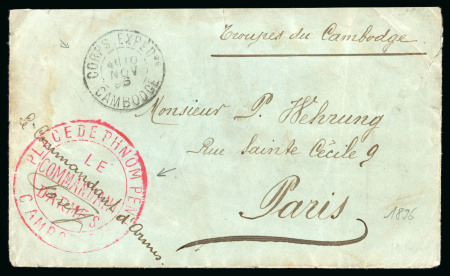 Troupes du Cambodge
CORPS EXPED^RE
10
NOV
CAMBODGE
Monsieur P. Wehrung
Rue Sainte Cécile 9
Paris
1896
PLACE DE PHNOM PENH
LE
COMMANDANT
D'ARMES
CAMBODGE
Le Commandant d'Armes.